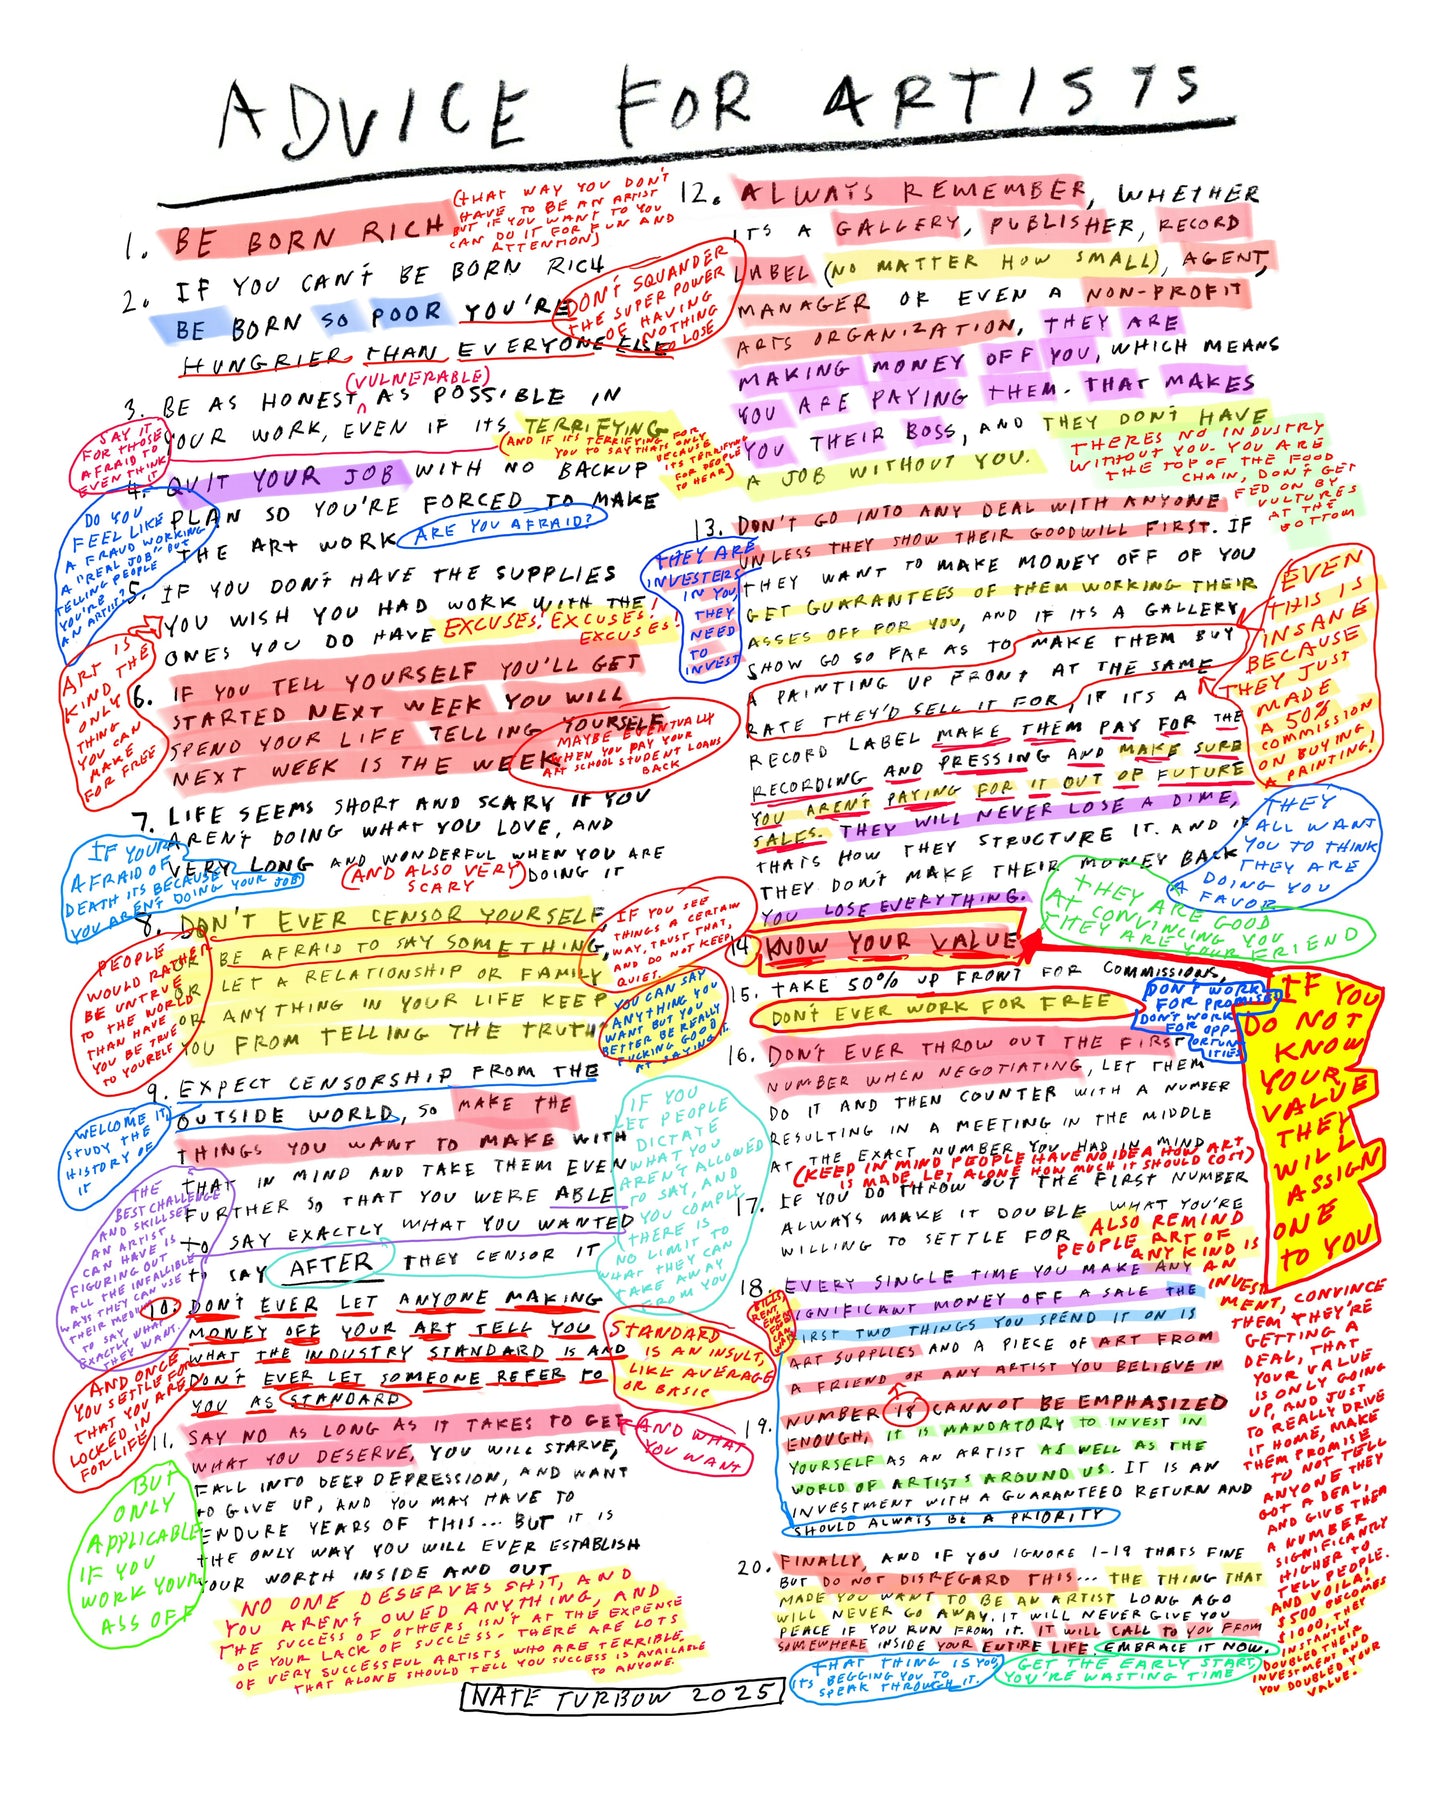 ADVICE FOR ARTISTS
1. BE BORN RICH
(THAT WAY YOU DON'T
HAVE TO BE AN ARTIST
BUT IF YOU WANT TO YOU
CAN DO IT FOR FUN AND
ATTENTION)
2. IF YOU CAN'T BE BORN RICH
BE BORN SO POOR YOU'RE
HUNGRIER THAN EVERYONE ELSE
DON'T SQUANDER
THE SUPER POWER
OF HAVING
NOTHING
TO LOSE
(VULNERABLE)
3. BE AS HONEST AS POSSIBLE IN
YOUR WORK, EVEN IF ITS TERRIFYING
(AND IF ITS TERRIFYING FOR
YOU TO SAY THATS ONLY
BECAUSE
ITS TERRIFYING
FOR PEOPLE
TO HEAR)
SAY IT
FOR THOSE
AFRAID TO
EVEN THINK
4. QUIT YOUR JOB WITH NO BACKUP
PLAN SO YOU'RE FORCED TO MAKE
THE ART WORK
ARE YOU AFRAID?
DO YOU
FEEL LIKE
A FRAUD WORKING
A "REAL JOB" BUT
TELLING PEOPLE
YOU'RE
AN ARTIST?
5. IF YOU DON'T HAVE THE SUPPLIES
YOU WISH YOU HAD WORK WITH THE
ONES YOU DO HAVE
EXCUSES! EXCUSES!
EXCUSES!
ART IS
KIND THE
ONLY
THING
YOU CAN
MAKE
FOR FREE
6. IF YOU TELL YOURSELF YOU'LL GET
STARTED NEXT WEEK YOU WILL
SPEND YOUR LIFE TELLING YOURSELF
NEXT WEEK IS THE WEEK
MAYBE EVENTUALLY
WHEN YOU PAY YOUR
ART SCHOOL STUDENT LOANS
BACK
7. LIFE SEEMS SHORT AND SCARY IF YOU
AREN'T DOING WHAT YOU LOVE, AND
VERY LONG AND WONDERFUL WHEN YOU ARE
DOING IT
(AND ALSO VERY)
SCARY
IF YOUR
AFRAID OF
DEATH ITS BECAUSE
YOU AREN'T DOING YOUR JOB
8. DON'T EVER CENSOR YOURSELF
OR BE AFRAID TO SAY SOMETHING,
OR LET A RELATIONSHIP OR FAMILY
OR ANYTHING IN YOUR LIFE KEEP
YOU FROM TELLING THE TRUTH
IF YOU SEE
THINGS A CERTAIN
WAY, TRUST THAT,
AND DO NOT KEEP
QUIET.
YOU CAN SAY
ANYTHING YOU
WANT BUT YOU
BETTER BE REALLY
FUCKING GOOD
AT SAYING IT.
PEOPLE
WOULD RATHER
BE UNTRUE
TO THE WORLD
THAN HAVE
YOU BE TRUE
TO YOURSELF
9. EXPECT CENSORSHIP FROM THE
OUTSIDE WORLD, SO MAKE THE
THINGS YOU WANT TO MAKE WITH
THAT IN MIND AND TAKE THEM EVEN
FURTHER SO THAT YOU WERE ABLE
TO SAY EXACTLY WHAT YOU WANTED
TO SAY AFTER THEY CENSOR IT
WELCOME IT,
STUDY THE
HISTORY OF
IT
IF YOU
LET PEOPLE
DICTATE
WHAT YOU
AREN'T ALLOWED
TO SAY, AND
YOU COMPLY
THERE IS
NO LIMIT TO
WHAT THEY CAN
TAKE AWAY
FROM YOU
THE
BEST CHALLENGE
AND SKILLSET
AN ARTIST
CAN HAVE IS
FIGURING OUT
ALL THE INFALLIBLE
WAYS THEY CAN USE
THEIR MEDIUM TO
SAY
EXACTLY WHAT
THEY WANT.
10. DON'T EVER LET ANYONE MAKING
MONEY OFF YOUR ART TELL YOU
WHAT THE INDUSTRY STANDARD IS AND
DON'T EVER LET SOMEONE REFER TO
YOU AS STANDARD
STANDARD
IS AN INSULT,
LIKE AVERAGE
OR BASIC
AND ONCE
YOU SETTLE FOR
THAT YOU ARE
LOCKED IN
FOR LIFE
11. SAY NO AS LONG AS IT TAKES TO GET
WHAT YOU DESERVE, YOU WILL STARVE,
FALL INTO DEEP DEPRESSION, AND WANT
TO GIVE UP, AND YOU MAY HAVE TO
ENDURE YEARS OF THIS... BUT IT IS
THE ONLY WAY YOU WILL EVER ESTABLISH
YOUR WORTH INSIDE AND OUT
AND WHAT
YOU WANT
BUT
ONLY
APPLICABLE
IF YOU
WORK YOUR
ASS OFF
NO ONE DESERVES SHIT, AND
YOU AREN'T OWED ANYTHING, AND
THE SUCCESS OF OTHERS ISN'T AT THE EXPENSE
OF YOUR LACK OF SUCCESS. THERE ARE LOTS
OF VERY SUCCESSFUL ARTISTS WHO ARE TERRIBLE.
THAT ALONE SHOULD TELL YOU SUCCESS IS AVAILABLE
TO ANYONE.
12. ALWAYS REMEMBER, WHETHER
ITS A GALLERY, PUBLISHER, RECORD
LABEL (NO MATTER HOW SMALL), AGENT,
MANAGER OR EVEN A NON-PROFIT
ARTS ORGANIZATION, THEY ARE
MAKING MONEY OFF YOU, WHICH MEANS
YOU ARE PAYING THEM. THAT MAKES
YOU THEIR BOSS, AND THEY DON'T HAVE
A JOB WITHOUT YOU.
THERES NO INDUSTRY
WITHOUT YOU. YOU ARE
THE TOP OF THE FOOD
CHAIN, DON'T GET
FED ON BY
VULTURES
AT THE
BOTTOM
13. DON'T GO INTO ANY DEAL WITH ANYONE
UNLESS THEY SHOW THEIR GOODWILL FIRST. IF
THEY WANT TO MAKE MONEY OFF OF YOU
GET GUARANTEES OF THEM WORKING THEIR
ASSES OFF FOR YOU, AND IF ITS A GALLERY
SHOW GO SO FAR AS TO MAKE THEM BUY
A PAINTING UP FRONT AT THE SAME
RATE THEY'D SELL IT FOR, IF ITS A
RECORD LABEL MAKE THEM PAY FOR THE
RECORDING AND PRESSING AND MAKE SURE
YOU AREN'T PAYING FOR IT OUT OF FUTURE
SALES. THEY WILL NEVER LOSE A DIME,
THATS HOW THEY STRUCTURE IT. AND IF
THEY DON'T MAKE THEIR MONEY BACK
YOU LOSE EVERYTHING.
THEY ARE
INVESTERS
IN YOU,
THEY
NEED
TO
INVEST
EVEN
THIS IS
INSANE
BECAUSE
THEY JUST
MADE
A 50%
COMMISSION
ON BUYING
A PAINTING!
THEY
ALL WANT
YOU TO THINK
THEY ARE
DOING YOU
A FAVOR
THEY ARE GOOD
AT CONVINCING YOU
THEY ARE YOUR FRIEND
14. KNOW YOUR VALUE
IF YOU
DO NOT
KNOW
YOUR
VALUE
THEY
WILL
ASSIGN
ONE
TO YOU
15. TAKE 50% UP FRONT FOR COMMISSIONS,
DON'T EVER WORK FOR FREE
DON'T WORK
FOR PROMISES
DON'T WORK
FOR OPP-
ORTUN-
ITIES
16. DON'T EVER THROW OUT THE FIRST
NUMBER WHEN NEGOTIATING, LET THEM
DO IT AND THEN COUNTER WITH A NUMBER
RESULTING IN A MEETING IN THE MIDDLE
AT THE EXACT NUMBER YOU HAD IN MIND
(KEEP IN MIND PEOPLE HAVE NO IDEA HOW ART
IS MADE, LET ALONE HOW MUCH IT SHOULD COST)
17. IF YOU DO THROW OUT THE FIRST NUMBER
ALWAYS MAKE IT DOUBLE WHAT YOU'RE
WILLING TO SETTLE FOR
ALSO REMIND
PEOPLE ART OF
ANY KIND IS
AN
INVEST
MENT, CONVINCE
THEM THEY'RE
GETTING A
DEAL, THAT
YOUR VALUE
IS ONLY GOING
UP, AND JUST
TO REALLY DRIVE
IT HOME, MAKE
THEM PROMISE
TO NOT TELL
ANYONE THEY
GOT A DEAL,
AND GIVE THEM
A NUMBER
SIGNIFICANTLY
HIGHER TO
TELL PEOPLE.
AND VOILA!
$500 BECOMES
$1000, THEY
INSTANTLY
DOUBLED THEIR
INVESTMENT AND
YOU DOUBLED YOUR
VALUE.
18. EVERY SINGLE TIME YOU MAKE ANY
SIGNIFICANT MONEY OFF A SALE THE
FIRST TWO THINGS YOU SPEND IT ON IS
ART SUPPLIES AND A PIECE OF ART FROM
A FRIEND OR ANY ARTIST YOU BELIEVE IN
BILLS
RENT
EVEN
FOOD
CAN
WAIT
19. NUMBER 18 CANNOT BE EMPHASIZED
ENOUGH, IT IS MANDATORY TO INVEST IN
YOURSELF AS AN ARTIST AS WELL AS THE
WORLD OF ARTISTS AROUND US. IT IS AN
INVESTMENT WITH A GUARANTEED RETURN AND
SHOULD ALWAYS BE A PRIORITY
20. FINALLY, AND IF YOU IGNORE 1-19 THATS FINE
BUT DO NOT DISREGARD THIS... THE THING THAT
MADE YOU WANT TO BE AN ARTIST LONG AGO
WILL NEVER GO AWAY. IT WILL NEVER GIVE YOU
PEACE IF YOU RUN FROM IT. IT WILL CALL TO YOU FROM
SOMEWHERE INSIDE YOUR ENTIRE LIFE. EMBRACE IT NOW.
THAT THING IS YOU
ITS BEGGING YOU TO
SPEAK THROUGH IT.
GET THE EARLY START,
YOU'RE WASTING TIME
NATE TURBOW 2025